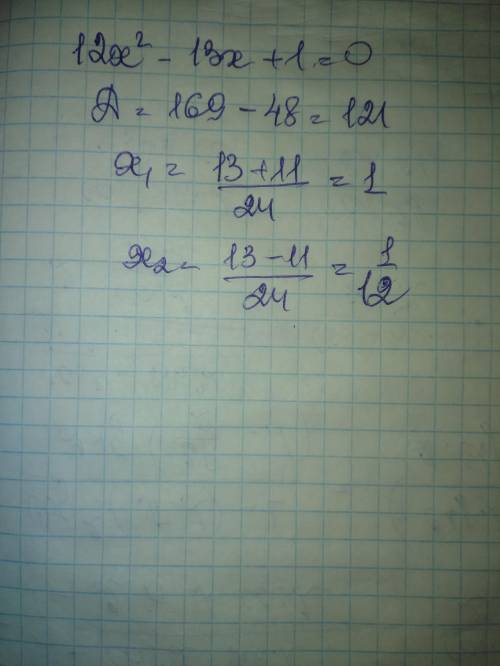 12x² - 13x + 1 = 0
D = 169 - 48 = 121
x₁ = (13 + 11)/24 = 1
x₂ = (13 - 11)/24 = 1/12